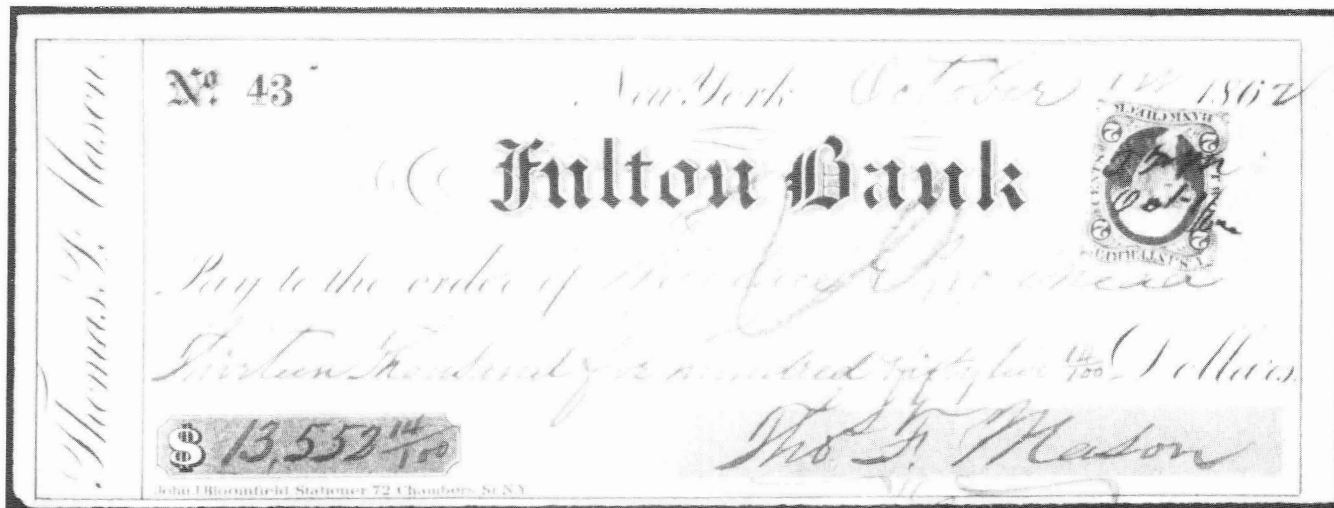 Thomas F. Mason.
No. 43
New York October 1862
Fulton Bank
BANK CHECK
2 2
CENTS
2 2
U.S. INT. REV.
Oct
Pay to the order of
Thirteen Thousand five hundred fifty two 14/100 Dollars.
$ 13,552 14/100
Thos F. Mason
John J Bloomfield Stationer 72 Chambers St. N.Y